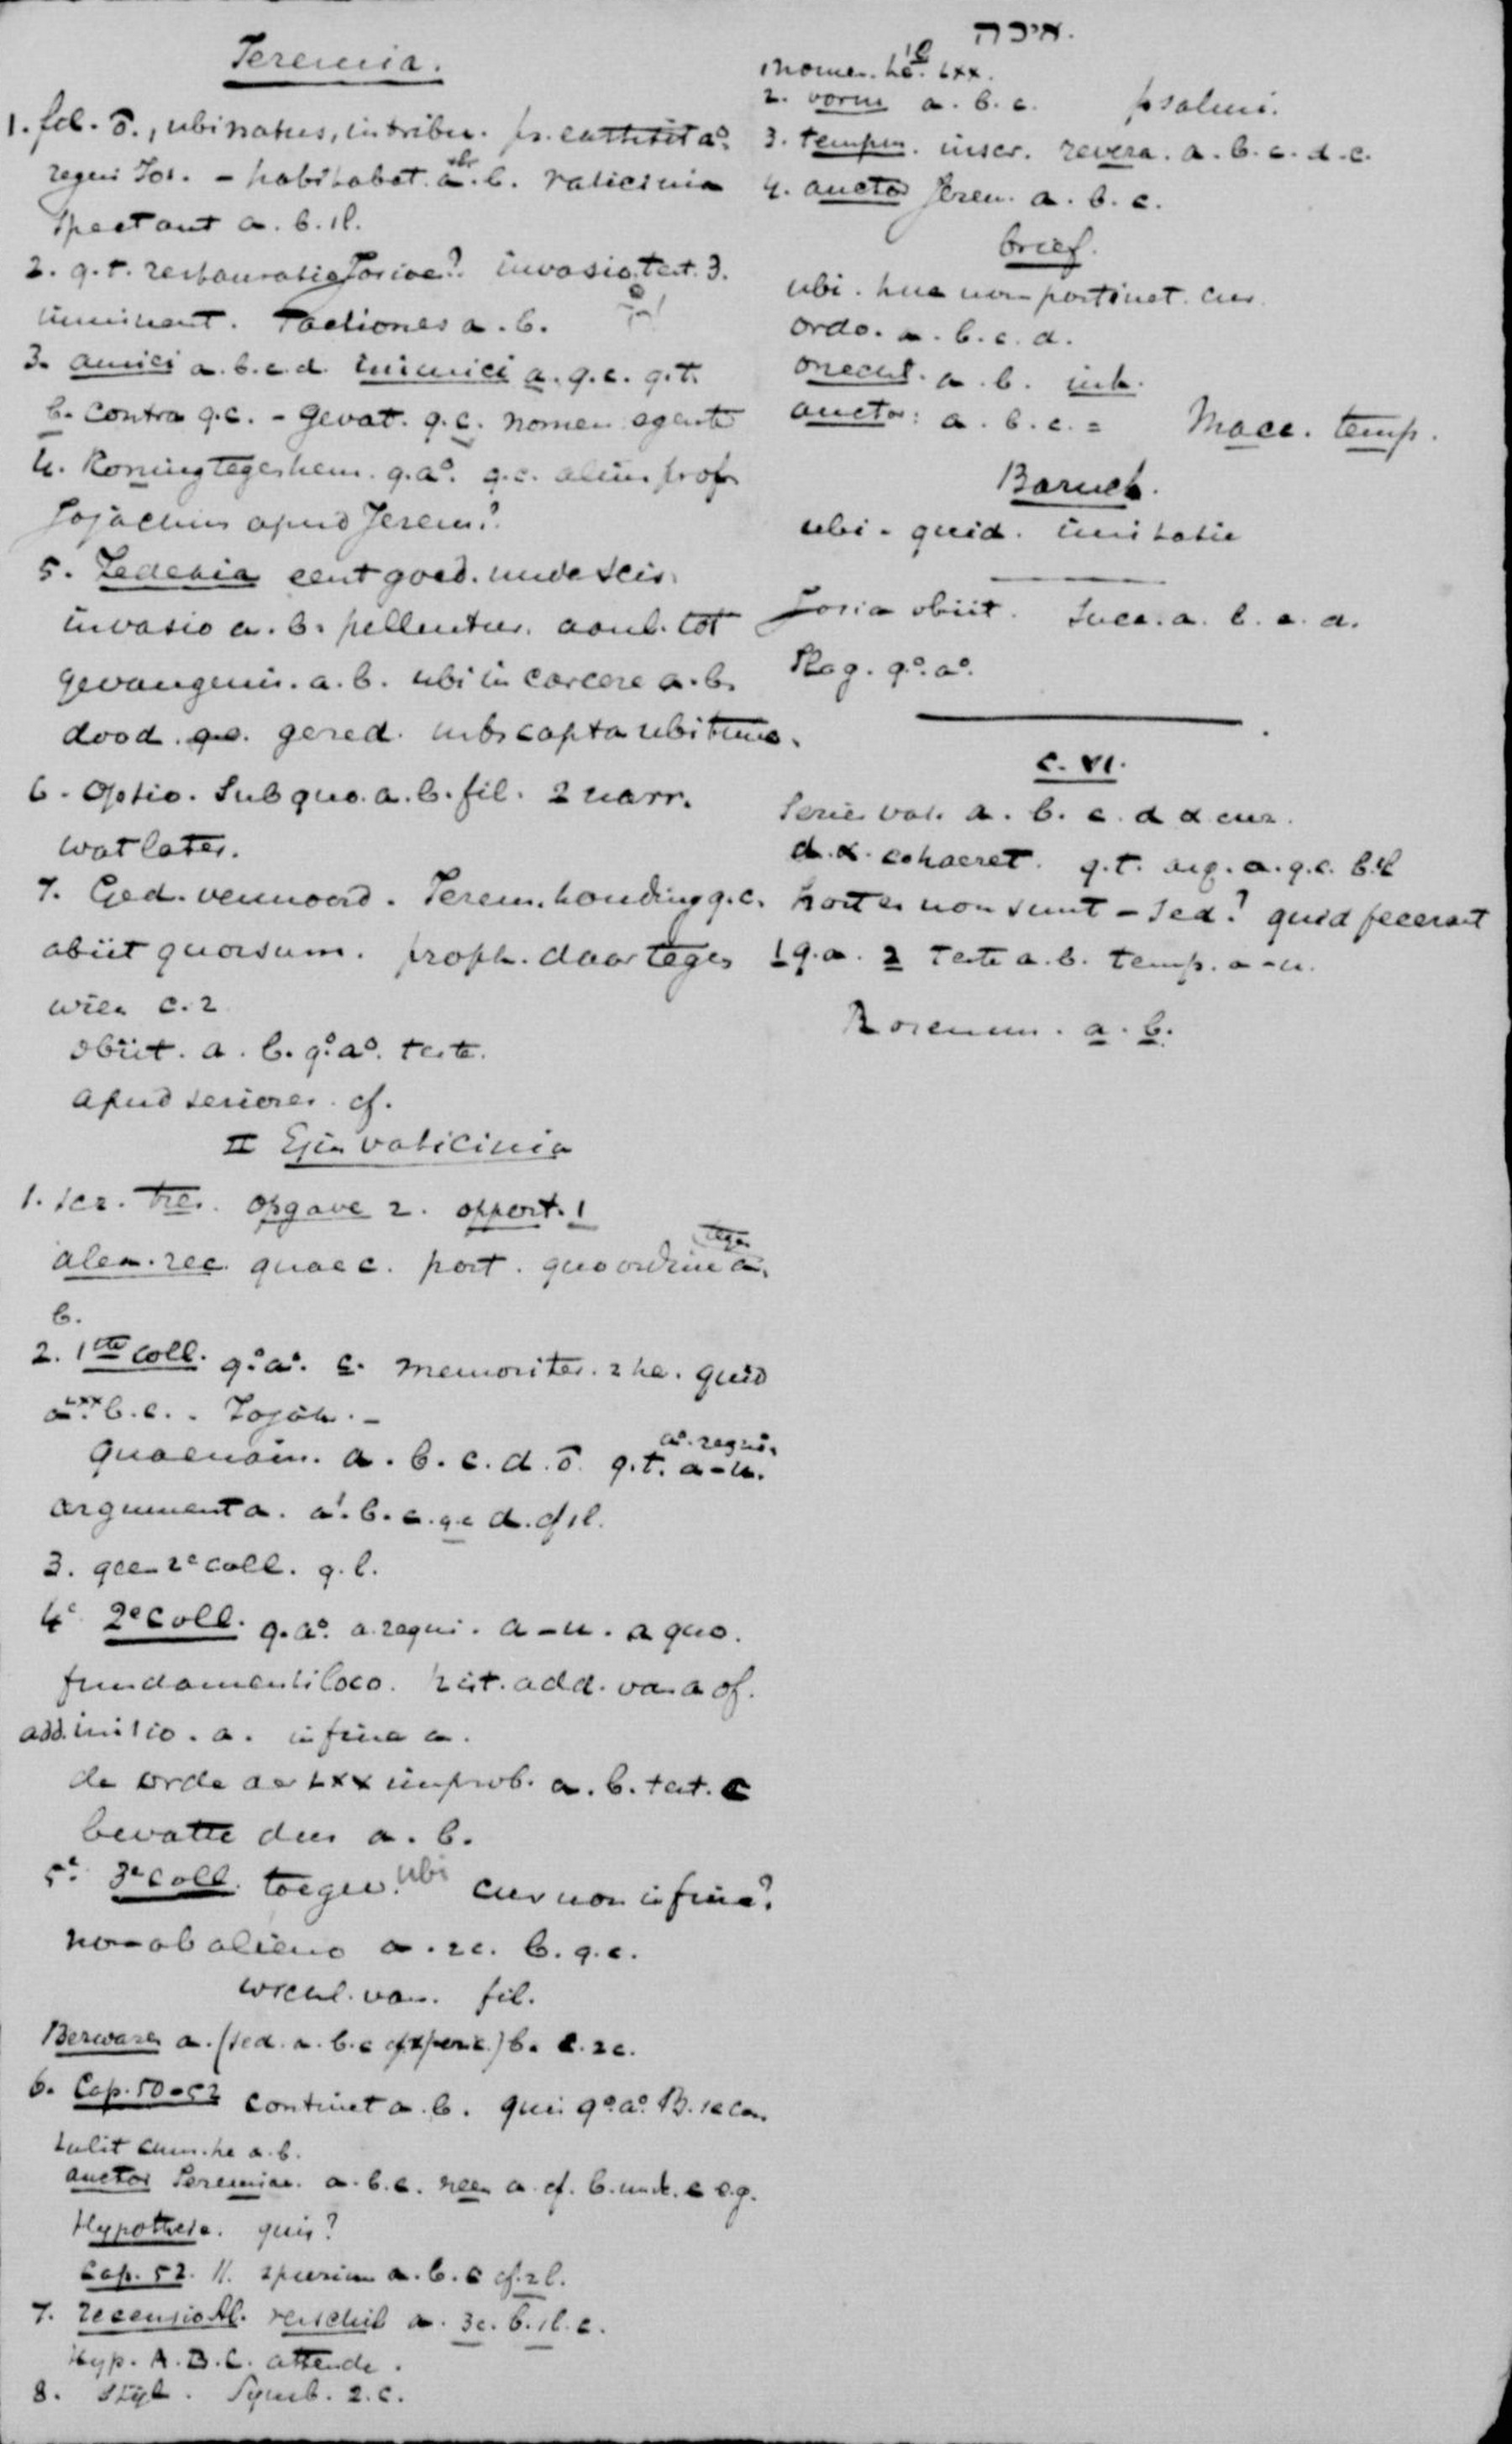 Jeremia.
1. fil. ō., ubi natus, in tribu. pr. extitit aº.
regni Jos. - habitabat a. b. vaticinia
spectant a. b. 1l.
2. q.t. restauratio Josiae? invasio. test. 3.
imminent. Factiones a. b.
3. amici a. b. c. d. inimici a. q.c. q.t.
b. contra q.c. - Gevat. q.c. nomen agente
4. Koning tegen hem. q.aº. q.c. alius prof.
Jojachim apud Jerem?
5. Zedekia eent goed. unde scis.
invasio a. b. pelluntur. aanl. tot
gevangenis. a. b. ubi in carcere a. b.
dood. q.c. gered. urbs capta ubi tunc.
6. Optio. Sub quo. a. b. fil. 2 narr.
wat later.
7. Ged. vermoord. Jerem. houding q.c.
abiit quorsum. proph. daar tegen
wien c. 2
obiit. a. b. qº. aº. teste.
apud seriores. cf.
II Ejus vaticinia
1. scr. tres. opgave 2. opport. 1
alex. rec. quae c. post. quo ordine a.
b.
2. 1ste coll. qº. aº. c. memoriter. 2 he. quid
a. LXX b. c. Jojak. -
quaenam. a. b. c. d. ō. q.t. a-u. aº. regni.
argumenta. a'. b. c. q.c d. cf 1l.
3. geen 2e coll. q. l.
4e 2e Coll. q. aº. a. regni. a-u. a quo.
fundamenti loco. hist. add. van a cf.
add. initio. a. in fine a.
de orde der LXX improb. a. b. test. c
bevatte dus a. b.
5e. 3e coll. toegev. ubi cur non in fine?
non ab alieno a. 2c. b. q.c.
verschl. van. fil.
Bezwaren a. (sed. a. b. c) b. c. 2c.
6. Cap. 50-52 continet a. b. quis qº. aº. B. secum
tulit cum. he a. b.
auctor Jeremias. a. b. c. neen a. cf. b. unde. c e.g.
Hypothese. quis?
Cap. 52. 11. spurium a. b. c cf. 2l.
7. recensio Al. verschil a. 3c. b. 1l. c.
Hyp. A. B. C. attende.
8. Stijl. Symb. 2. c.
איכה.
1 nomen. he. LXX.
2. vorm a. b. c. psalmi.
3. tempus. inscr. revera. a. b. c. d. e.
4. auctor Jerem. a. b. c.
brief.
ubi. huc non pertinet. cur.
ordo. a. b. c. d.
onecht. a. b. inh.
auctor: a. b. c. = Macc. temp.
Baruch.
ubi. quid. imitatio
Josia obiit. Succ. a. b. c. d.
Rag. qº. aº.
c. VI.
Series vat. a. b. c. d α cur.
d. α. cohaeret. q.t. arg. a. q.c. b. 1l
hostes non sunt - sed? quid fecerant
1 q.a. 2 Teste a. b. temp. a-u.
Rosenm. a. b.